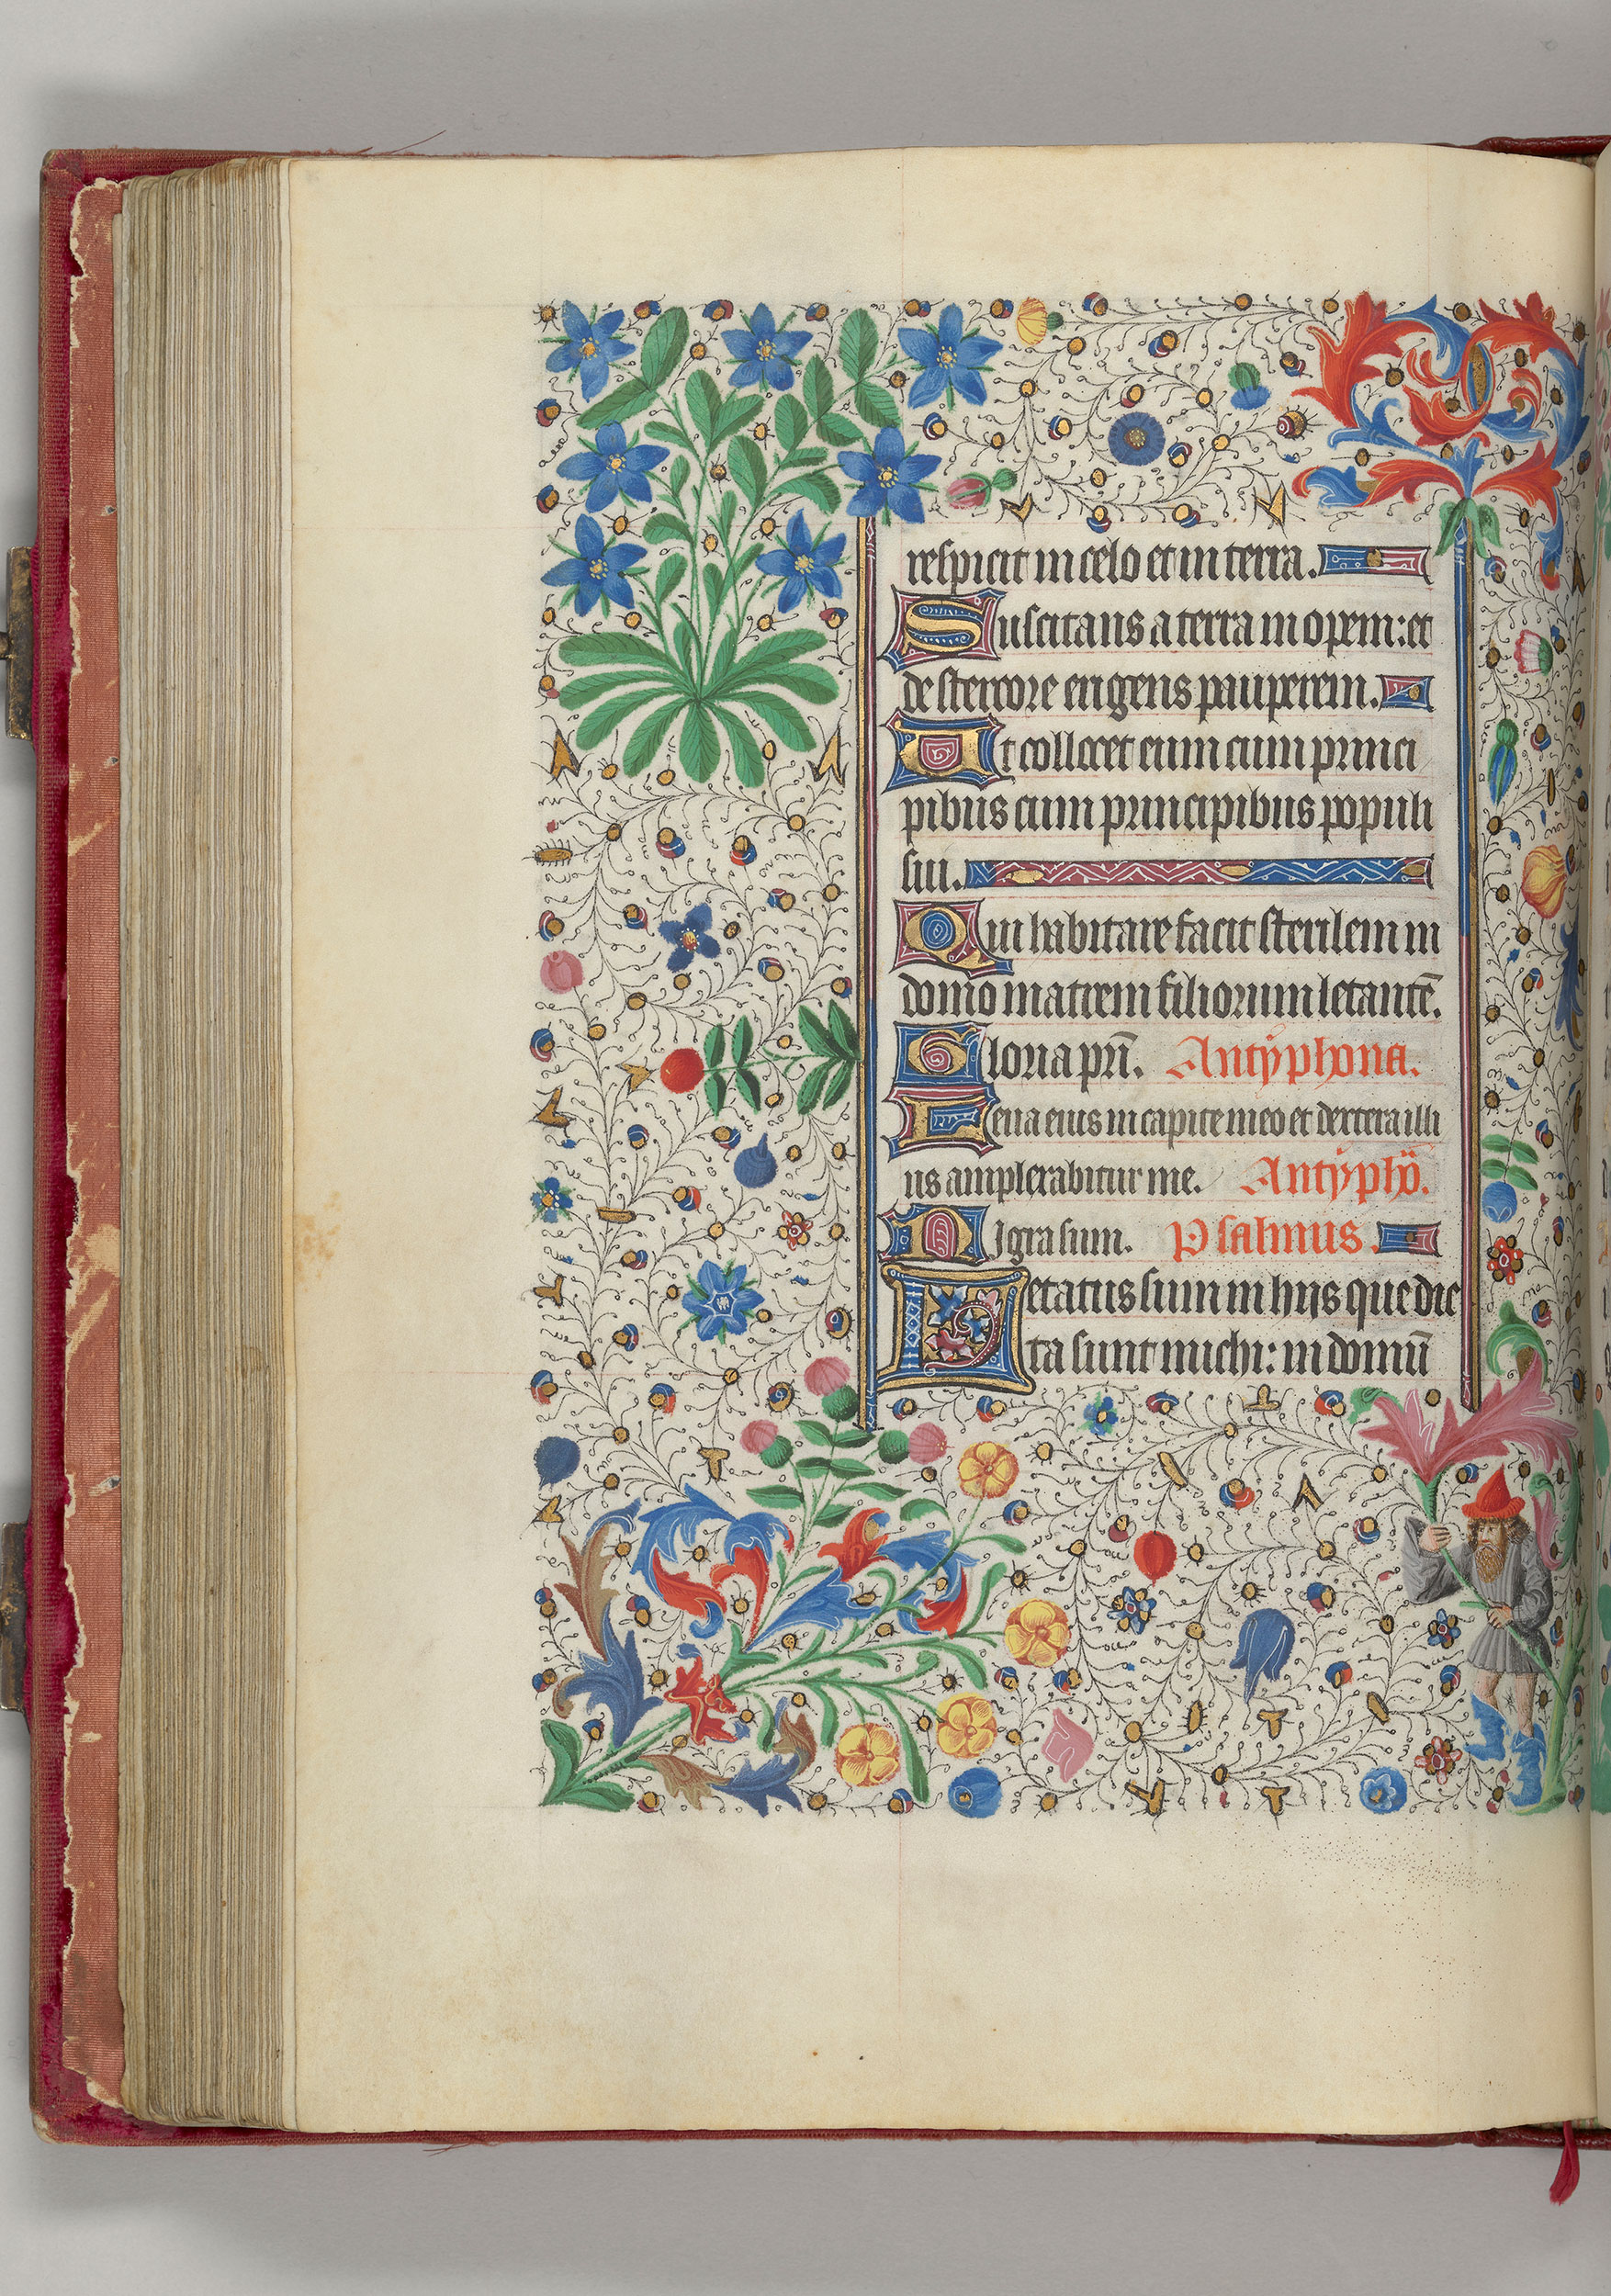 respicit in celo et in terra.
Suscitans a terra inopem: et
de stercore erigens pauperem.
Ut collocet eum cum princi
pibus cum principibus populi
sui.
Qui habitare facit sterilem in
domo matrem filiorum letantē.
Gloria pr̄i. Antyphona.
Leua eius in capite meo et dextera illi
us amplexabitur me. Antyphō.
Nigra sum. Psalmus.
Letatus sum in hijs que dic
ta sunt michi: in domū